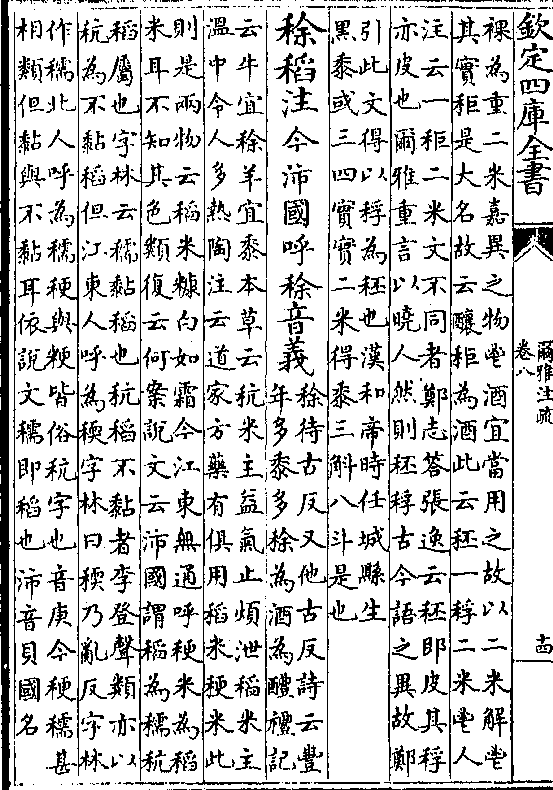 欽定四庫全書
爾雅注疏
卷八
十四
裸為重二米嘉異之物鬯酒宜當用之故以二米解鬯
其實秬是大名故云釀秬為酒此云秠一稃二米鬯人
注云一秬二米文不同者鄭志答張逸云秠即皮其稃
亦皮也爾雅重言以曉人然則秠稃古今語之異故鄭
引此文得以稃為秠也漢和帝時任城縣生
黑黍或三四實實二米得黍三斛八斗是也
稌稻注今沛國呼稌音義
稌待古反又他古反詩云豐
年多黍多稌為酒為醴禮記
云牛宜稌羊宜黍本草云秔米主益氣止煩泄稻米主
溫中令人多熱陶注云道家方藥有俱用稻米粳米此
則是兩物云稻米糠白如霜今江東無通呼粳米為稻
米耳不知其色類復云何案說文云沛國謂稻為稬秔
稻屬也字林云稬黏稻也秔稻不黏者李登聲類亦以
秔為不黏稻但江東人呼為稉字林曰稉乃亂反字林
作稬北人呼為稬稉與粳皆俗秔字也音庚今稉稬甚
相類但黏與不黏耳依說文稬即稻也沛音貝國名